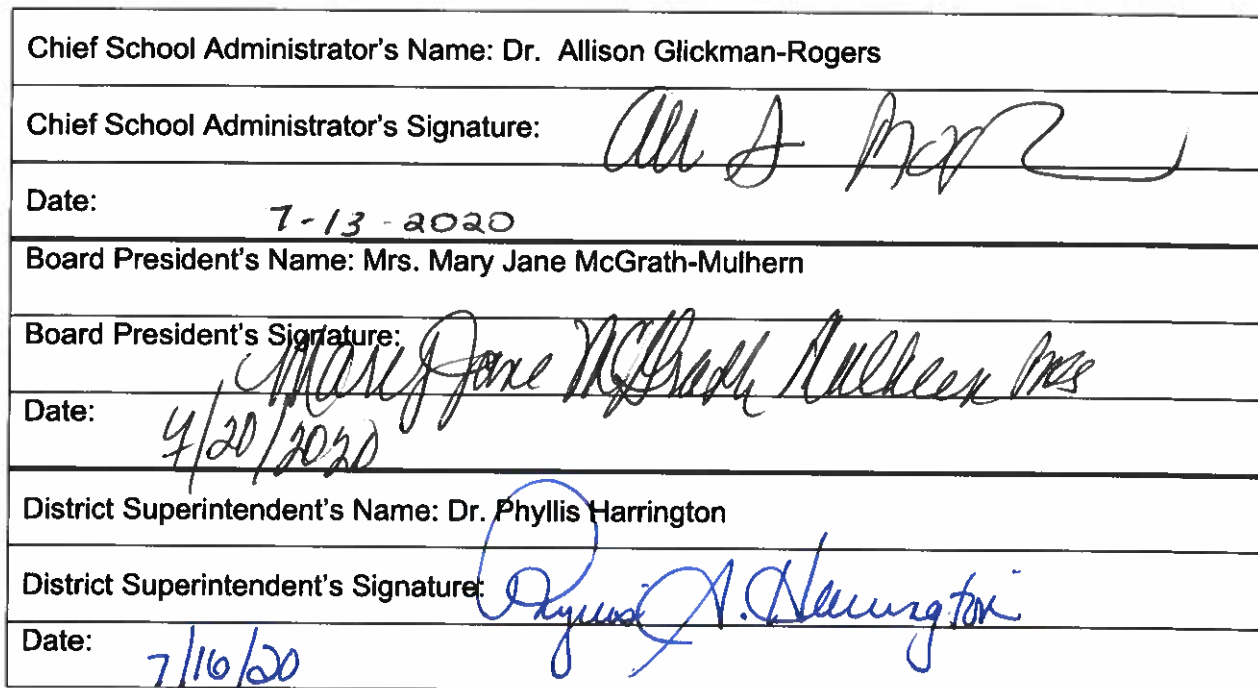 Chief School Administrator's Name: Dr. Allison Glickman-Rogers
Chief School Administrator's Signature:
Date: 7-13-2020
Board President's Name: Mrs. Mary Jane McGrath-Mulhern
Board President's Signature: Mary Jane McGrath Mulhern Pres
Date: 7/20/2020
District Superintendent's Name: Dr. Phyllis Harrington
District Superintendent's Signature: Phyllis A. Harrington
Date: 7/16/20